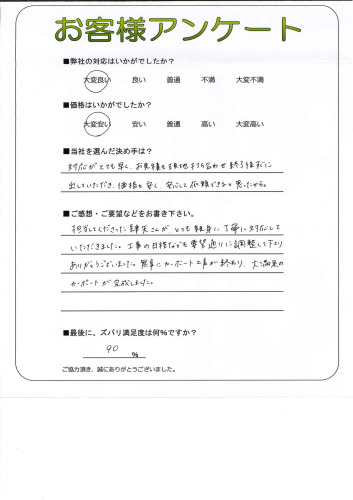 お客様アンケート
■弊社の対応はいかがでしたか?
大変良い 良い 普通 不満 大変不満
■価格はいかがでしたか?
大変安い 安い 普通 高い 大変高い
■当社を選んだ決め手は?
対応がとても早く、お見積も現地打ち合わせ終了後すぐに
出していただき、価格も安く、安心して依頼できると思ったから。
■ご感想・ご要望などをお書き下さい。
担当してくださった さんがとても親身に丁寧に対応して
いただきました。工事の日程なども要望通りに調整して下さり
ありがとうございました。無事にカーポート工事が終わり、大満足の
カーポートが完成しました。
■最後に、ズバリ満足度は何%ですか?
90 %
ご協力頂き、誠にありがとうございました。